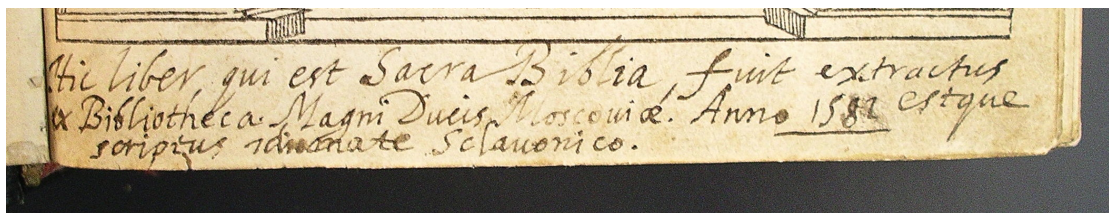 Hic liber, qui est Sacra Biblia, fuit extractus
ex Bibliotheca Magni Ducis Moscoviæ. Anno 1581 estque
scriptus idiomate Sclavonico.